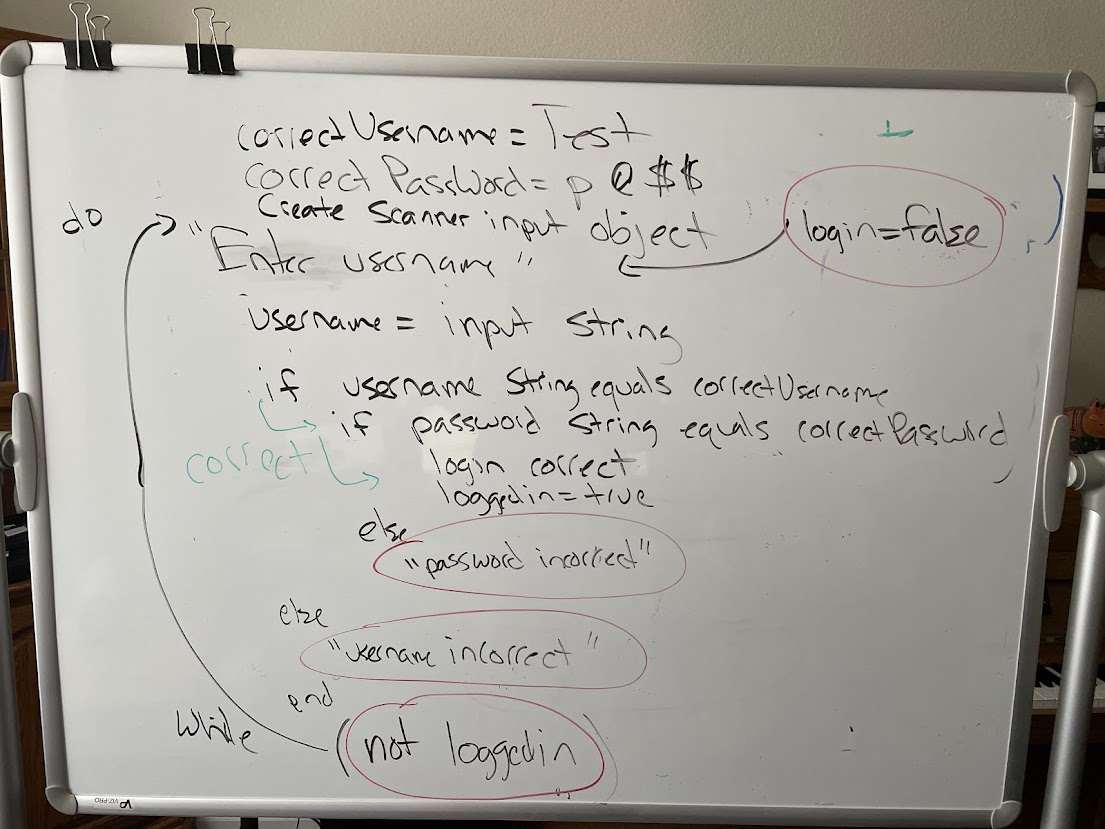 correctUsername = Test
correct Password = p@$$
Create Scanner input object
do
login=false
"Enter username"
username = input String
if username String equals correctUsername
if password String equals correctPassword
correct
login correct
loggedin=true
else
"password incorrect"
else
"username incorrect"
end
while (not loggedin)
VIZ-PRO